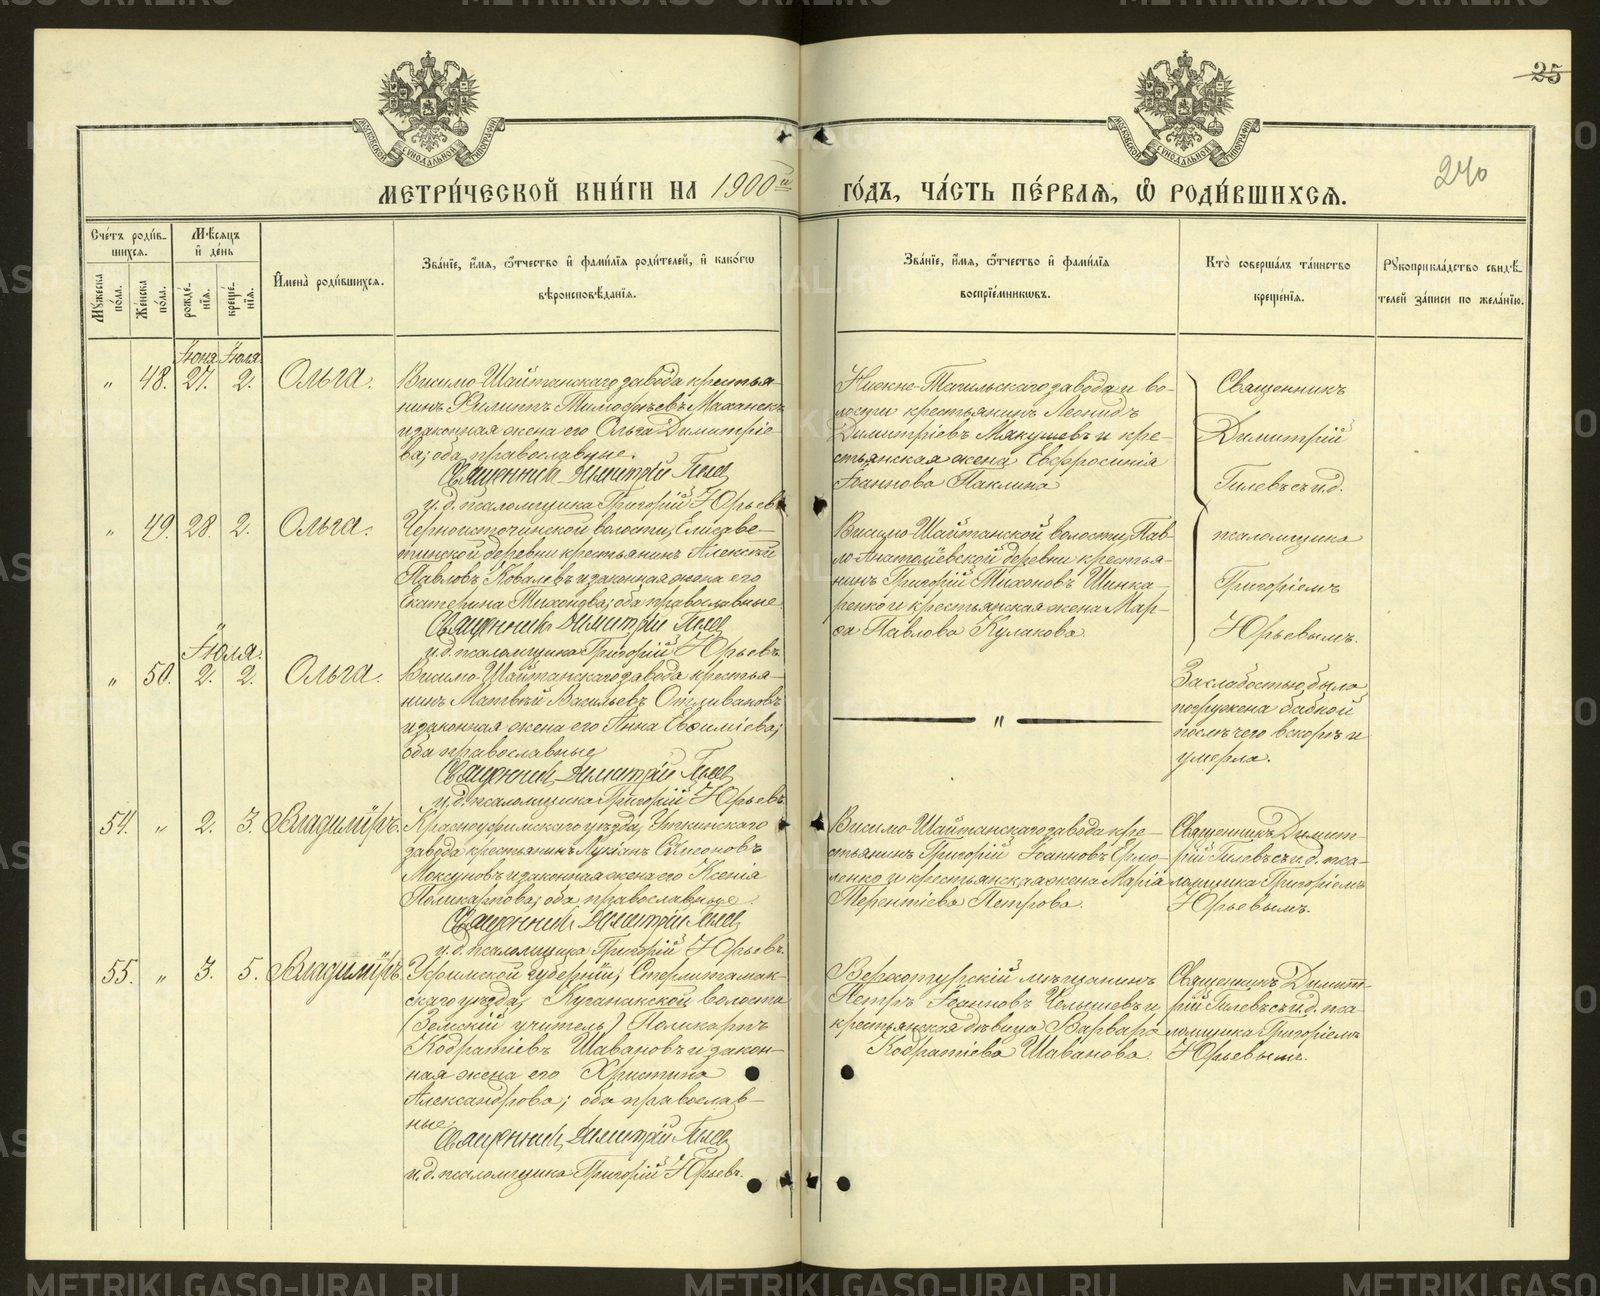 25
240
МЕТРИ́ЧЕСКОЙ КНИ́ГИ НА 1900й
ГО́ДЪ, ЧА́СТЬ ПЕ́РВАЯ, Ѽ РОДИ́ВШИХСЯ.
Сче́тъ роди́вшихся.
Мꙋ́жеска по́ла.
Же́нска по́ла.
Мѣ́сяцъ и҆ де́нь
рожде́нїя.
креще́нїя.
И҆мена̀ роди́вшихся.
Зва́нїе, и҆́мя, ѻ҆́тчество и҆ фами́лїя роди́телей, и҆ како́гѡ
вѣроисповѣ́данїя.
Зва́нїе, и҆́мя, ѻ҆́тчество и҆ фами́лїя
воспрїе́мникѡвъ.
Кто̀ соверша́лъ та́инство
креще́нїя.
Рꙋкоприкла́дство свидѣ́
телей за́писи по жела́нїю.
Іюня Іюля
„ 48. 27. 2. Ольга.
Висимо-Шайтанскаго завода крестья-
нинъ Филиппъ Тимофѣевъ Маханекъ
и законная жена его Ольга Димитріе-
ва; оба православные.
Священникъ Димитрій Гилев
и.д. псаломщика Григорій Юрьевъ
Нижне-Тагильскаго завода и во-
лости крестьянинъ Леонидъ
Димитріевъ Мякушевъ и кре-
стьянская жена Евфросинія
Іоаннова Паклина
Священникъ
Димитрій
Гилевъ съ и.д.
псаломщика
Григоріемъ
Юрьевымъ.
„ 49. 28. 2. Ольга.
Черноисточинской волости, Елисаве-
тинской деревни крестьянинъ Алексѣй
Павловъ Ковалевъ и законная жена его
Екатерина Тихонова; оба православные
Священникъ Димитрій Гилев
и.д. псаломщика Григорій Юрьевъ.
Висимо-Шайтанской волости, Пав-
ло-Анатольевской деревни крестья-
нинъ Григорій Тихоновъ Шинка-
ренко и крестьянская жена Мар-
ѳа Павлова Кулакова.
Іюля.
„ 50. 2. 2. Ольга.
Висимо-Шайтанскаго завода крестья-
нинъ Матвѣй Васильевъ Отливановъ
и законная жена его Анна Евфиміева;
оба православные
Священникъ Димитрій Гилев
и.д. псаломщика Григорій Юрьевъ.
„
За слабостью была
погружена бабкой
послѣ чего вскорѣ и
умерла.
54. „ 2. 3. Владиміръ.
Красноуфимскаго уѣзда, Уткинскаго
завода крестьянинъ Лукіанъ Симеоновъ
Моксуновъ и законная жена его Ксенія
Поликарпова; оба православные.
Священникъ Димитрій Гилев
и.д. псаломщика Григорій Юрьевъ.
Висимо-Шайтанскаго завода кре-
стьянинъ Григорій Іоанновъ Ермо-
ленко и крестьянская жена Марія
Терентіева Петрова.
Священникъ Димит-
рій Гилевъ съ и.д. пса-
ломщика Григоріемъ
Юрьевымъ.
55. „ 3. 5. Владиміръ.
Уфимской губерніи, Стерлитамак-
скаго уѣзда, Куганакской волости
(Земскій учитель) Поликарпъ
Кодратіевъ Шавановъ и закон-
ная жена его Христина
Александрова; оба православ-
ные.
Священникъ Димитрій Гилев
и.д. псаломщика Григорій Юрьевъ.
Верхотурскій мѣщанинъ
Петръ Іоанновъ Чолышевъ и
крестьянская дѣвица Варвара
Кодратіева Шаванова.
Священникъ Димит-
рій Гилевъ съ и.д. пса-
ломщика Григоріемъ
Юрьевымъ.
METRIKI.GASO-URAL.RU